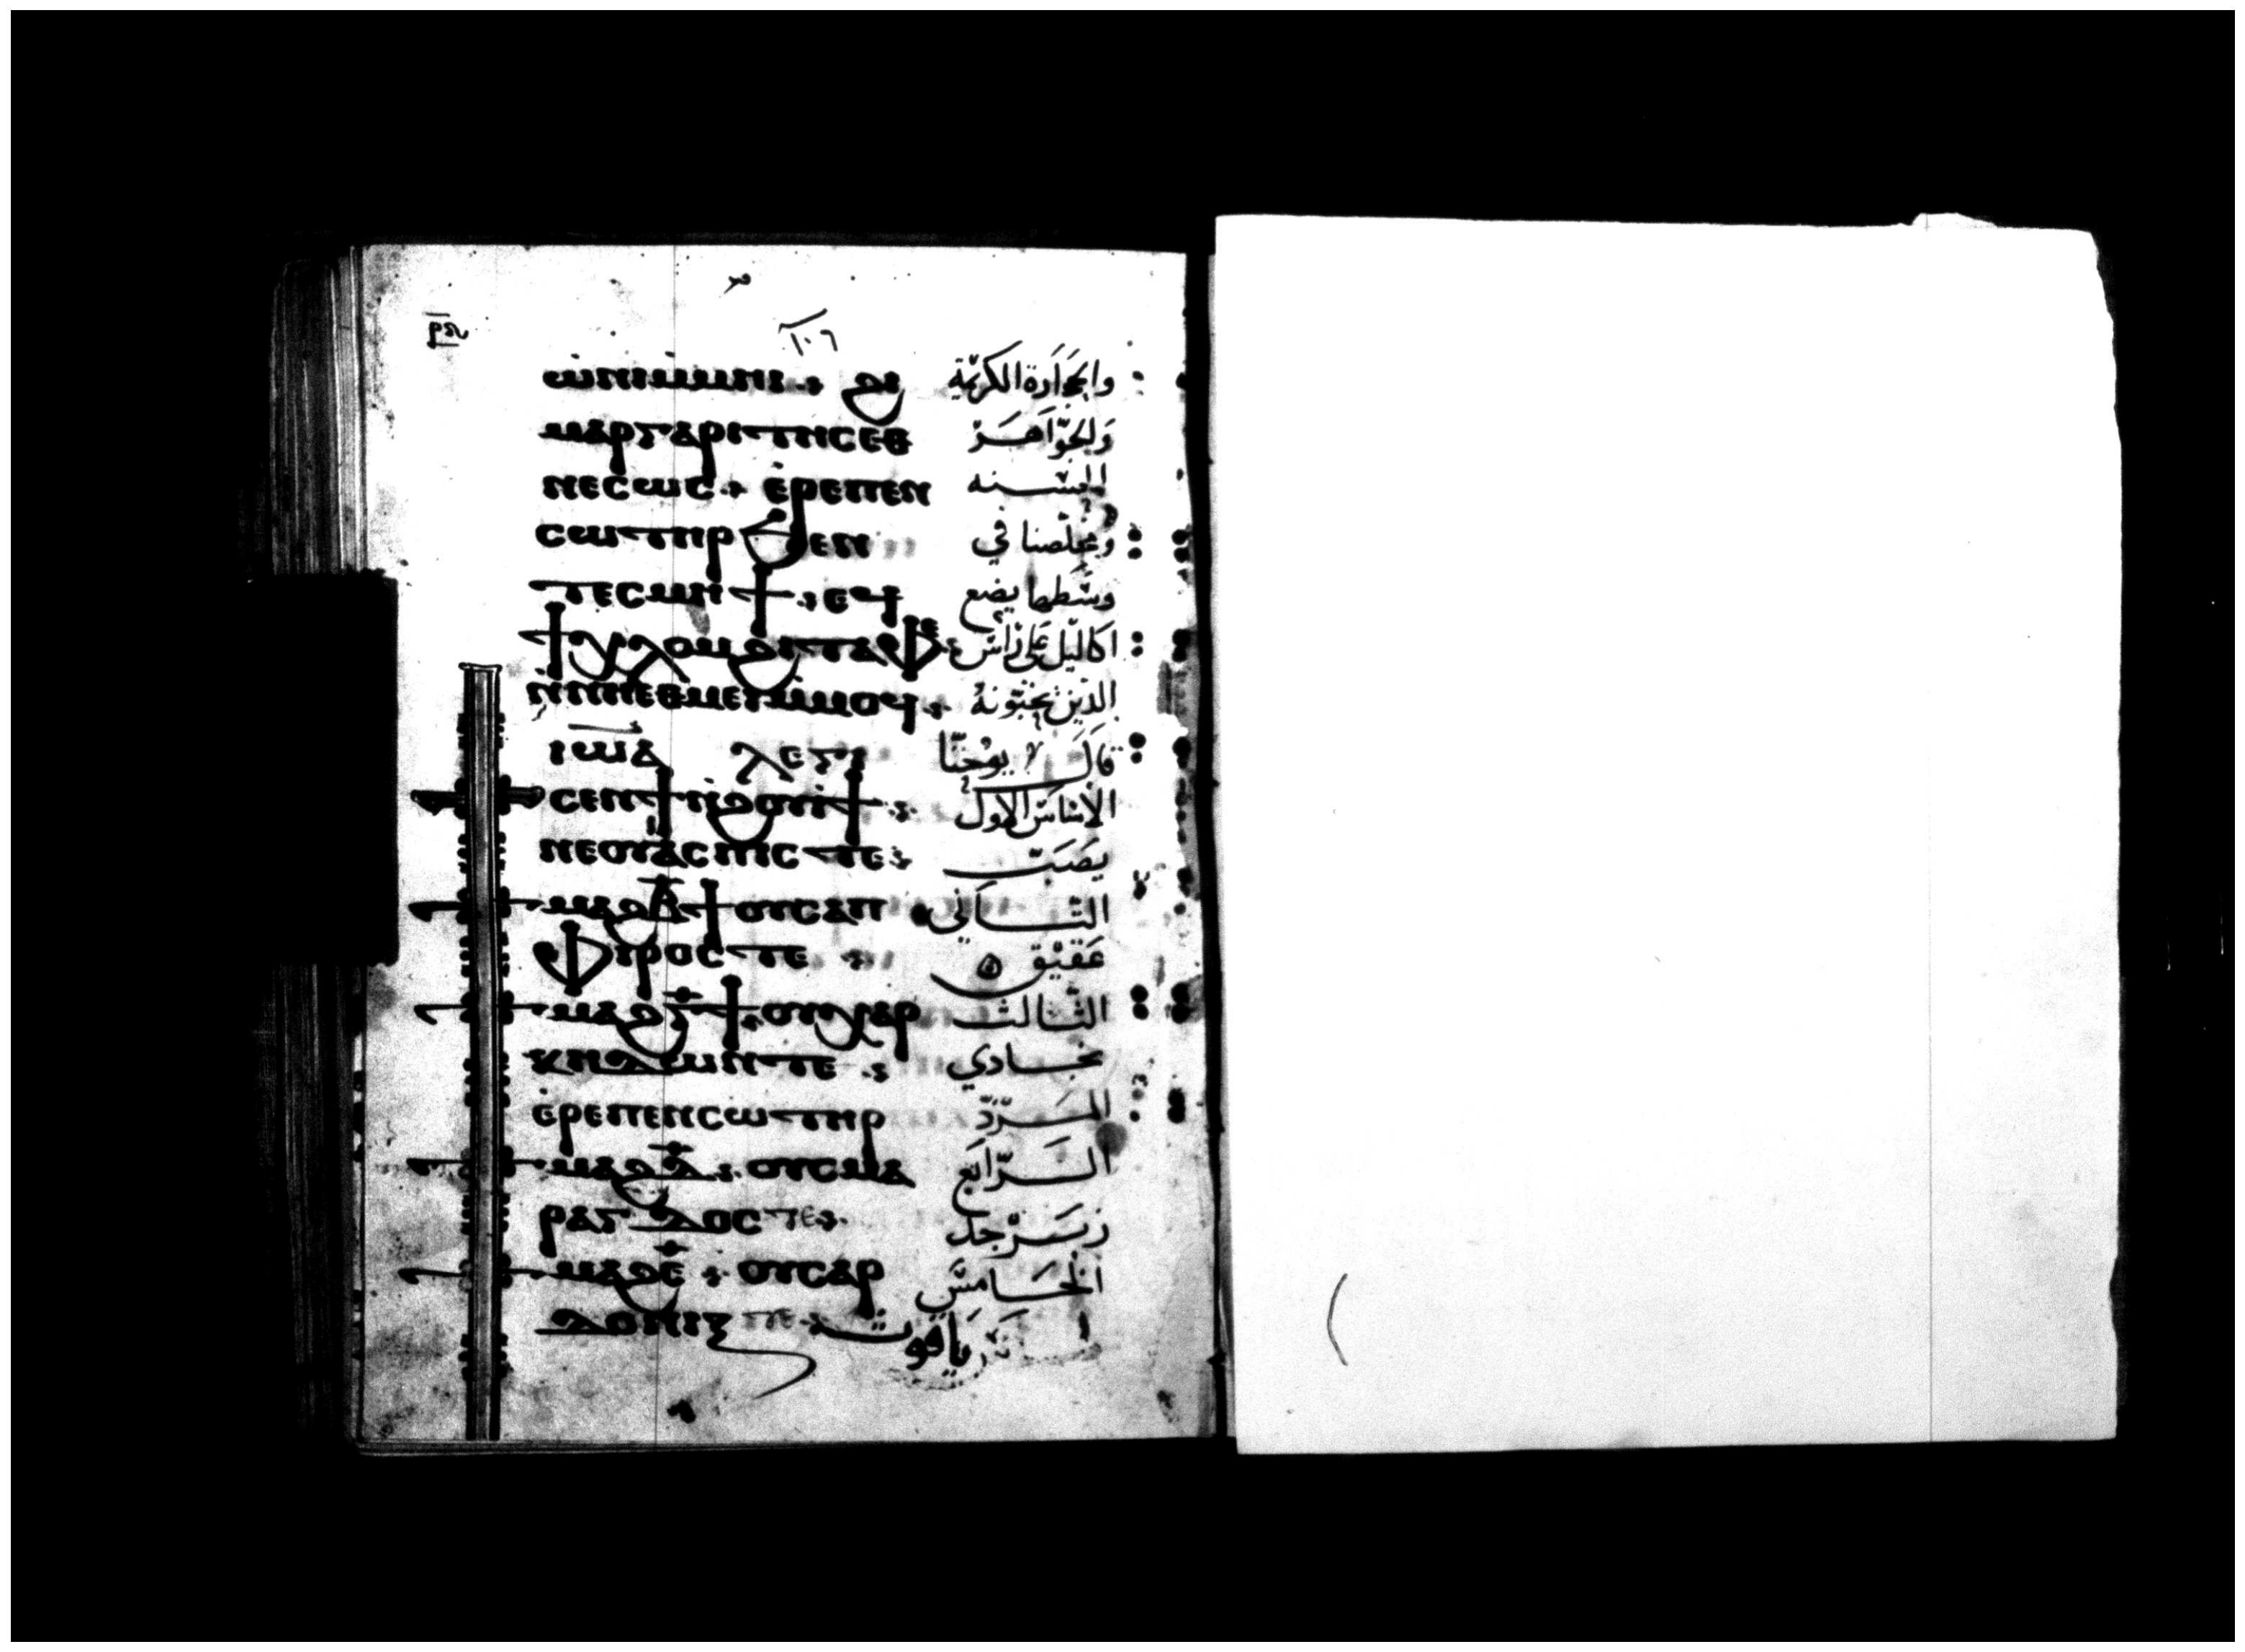 ⲣ̅ⲋ̅
١٠٦
ⲱ̀ⲛⲓⲙ̀ⲙⲏⲓ : ϩⲓ والحجارة الكريمة
ⲙⲁⲣⲅⲁⲣⲓⲧⲏⲥⲉⲑ والجواهر
ⲛⲉⲥⲱⲥ : ⲉ̀ⲣⲉⲡⲉⲛ الحسنه
ⲥⲱⲧⲏⲣ ϧⲉⲛ ومخلصنا في
ⲧⲉⲥⲙⲏϯ : ⲉϥ وسطها يضع
ϯⲭⲗⲟⲙϩⲓⲧⲁⲫⲉ اكاليل على راس
ⲛ̀ⲛⲏⲉⲑⲙⲉⲓⲙ̀ⲙⲟϥ : الذين يحبونه
ⲓⲱⲁ ⲗⲉⲅⲓ قال يوحنا
ⲥⲉⲛϯⲛ̀ϩⲟⲩⲓϯ : الاساس الاول
ⲛⲉⲟⲩⲁⲥⲡⲓⲥ ⲧⲉ : يصب
ⲙⲁϩⲃ̅ϯ ⲟⲩⲥⲁⲡ التاني
ⲫⲓⲣⲟⲥ ⲧⲉ : عقيق
ⲙⲁϩⲅ̅ϯ : ⲟⲩⲭⲁⲣ الثالث
ⲕⲏⲇⲱⲛ ⲧⲉ : بجادي
ⲉ̀ⲣⲉⲡⲉⲛⲥⲱⲧⲏⲣ المرد
ⲙⲁϩⲇ̅ : ⲟⲩⲥⲙⲁ الرابع
ⲣⲁⲅⲇⲟⲥ ⲧⲉ : زبرجد
ⲙⲁϩⲉ̅ : ⲟⲩⲥⲁⲣ الخامس
ⲇⲟⲛⲓⲝ ⲧⲉ : ياقوت